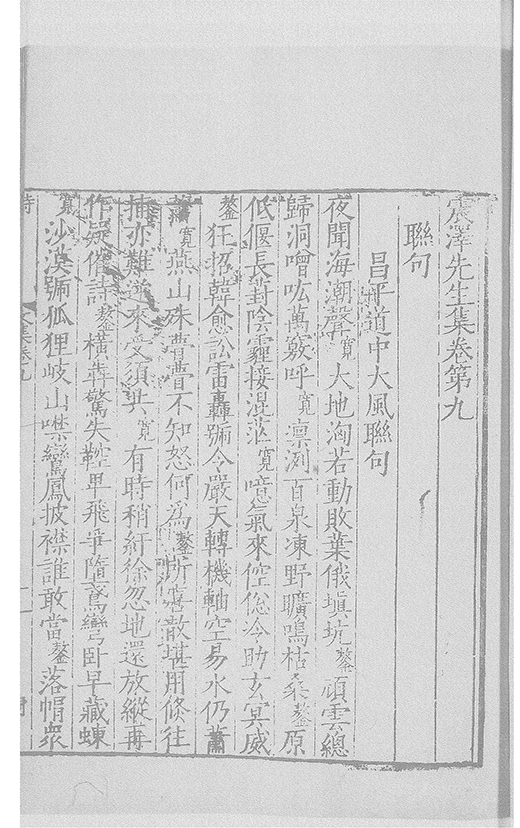 震澤先生集卷第九
聯句
昌平道中大風聯句
夜聞海潮聲寛大地洶若動敗葉俄塡坑鏊頑雲總
歸洞噌吰萬竅呼寛凛冽百泉凍野曠鳴枯桑鏊原
低偃長對陰霾接混茫寛噫氣來倥傯冷助玄冥威
鏊狂招韓愈訟雷轟號令嚴天轉機軸空易水仍蕭
蕭寛燕山殊瞢瞢不知怒何為鏊所喜散堪用倏往
捕亦難逆來受須共寛有時稍紓徐忽地還放縱再
作疑催詩鏊橫奔驚失鞚卑飛爭墮鳶彎卧早藏蝀
寛沙漠號狐狸岐山噤鸞鳳披襟誰敢當鏊落帽衆
文集卷九